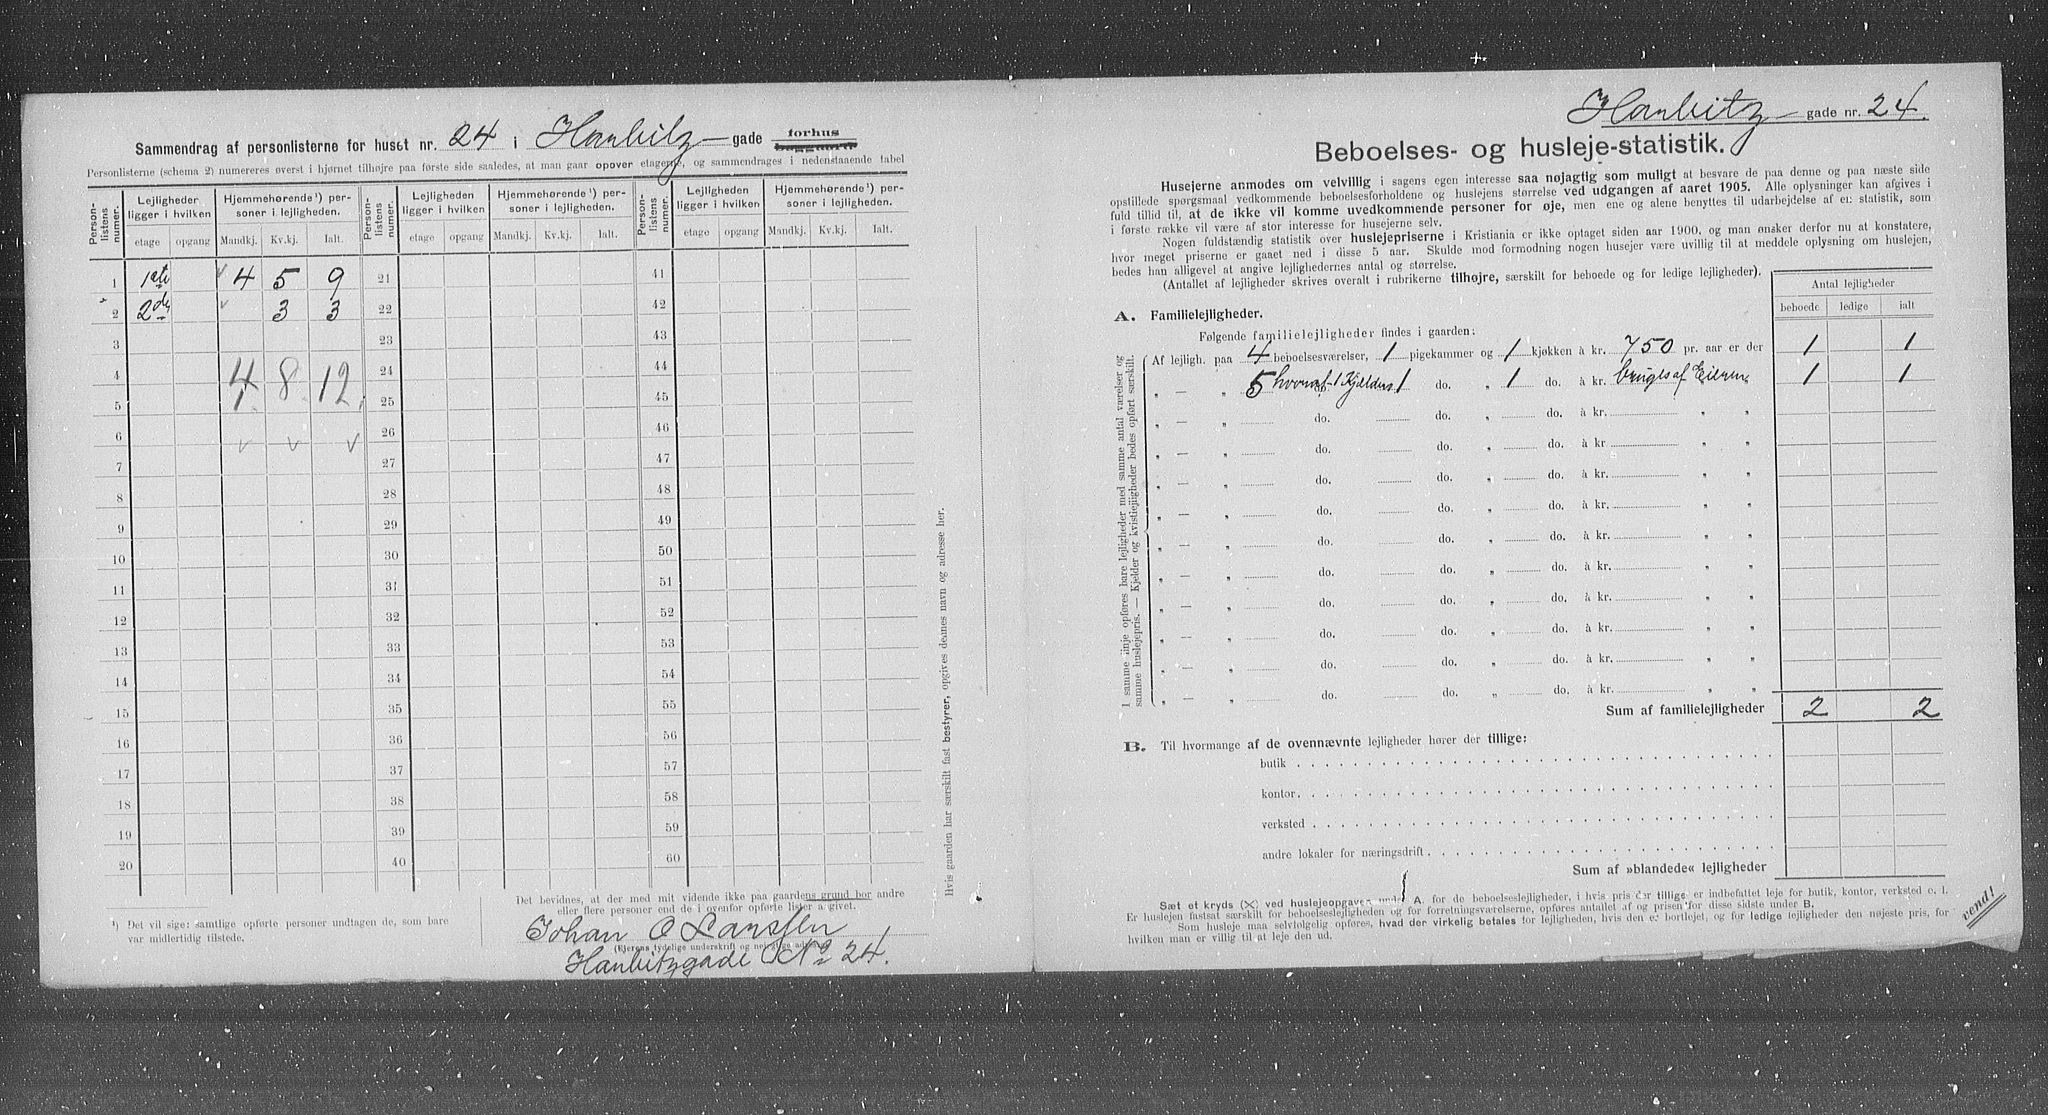 Sammendrag af personlisterne for huset nr. 24 i Haubitz- gade forhus
Personlisterne (schema 2) numereres øverst i hjørnet tilhøjre paa første side saaledes, at man gaar opover etagerne, og sammendrages i nedenstaaende tabel
Person-listens numer. Lejligheder ligger i hvilken Hjemmehørende ¹) personer i lejligheden. Person-listens numer. Lejligheden ligger i hvilken Hjemmehørende ¹) personer i lejligheden. Person-listens numer. Lejligheden ligger i hvilken Hjemmehørende ¹) personer i lejligheden.
etage opgang Mandkj. Kv.kj. Ialt. etage opgang Mandkj. Kv.kj. Ialt. etage opgang Mandkj. Kv.kj. Ialt.
1 1ste 4 5 9 21 41
2 2den 3 3 22 42
3 23 43
4 4 8 12 24 44
5 25 45
6 26 46
7 27 47
8 28 48
9 29 49
10 30 50
11 31 51
12 32 52
13 33 53
14 34 54
15 35 55
16 36 56
17 37 57
18 38 58
19 39 59
20 40 60
¹) Det vil sige: samtlige opførte personer undtagen de, som bare
var midlertidig tilstede.
Det bevidnes, at der med mit vidende ikke paa gaardens grund bor andre
eller flere personer end de i ovenfor opførte lister angivet.
Johan C Larssen
(Ejerens tydelige underskrift og nøjagtige adresse)
Haubitzgade No 24.
Hvis gaarden har særskilt fast bestyrer, opgives dennes navn og adresse her.
Haubitz- gade nr. 24.
Beboelses- og husleje-statistik.
Husejerne anmodes om velvillig i sagens egen interesse saa nøjagtig som muligt at besvare de paa denne og paa næste side
opstillede spørgsmaal vedkommende beboelsesforholdene og huslejens størrelse ved udgangen af aaret 1905. Alle oplysninger kan afgives i
fuld tillid til, at de ikke vil komme uvedkommende personer for øje, men ene og alene benyttes til udarbejdelse af en statistik, som
i første række vil være af stor interesse for husejerne selv.
Nogen fuldstændig statistik over huslejepriserne i Kristiania er ikke optaget siden aar 1900, og man ønsker derfor nu at konstatere,
hvor meget priserne er gaaet ned i disse 5 aar. Skulde mod formodning nogen husejer være uvillig til at meddele oplysning om huslejen,
bedes han alligevel at angive lejlighedernes antal og størrelse.
(Antallet af lejligheder skrives overalt i rubrikerne tilhøjre, særskilt for beboede og for ledige lejligheder).
Antal lejligheder
beboede ledige ialt
A. Familielejligheder.
Følgende familielejligheder findes i gaarden:
Af lejligh. paa 4 beboelsesværelser, 1 pigekammer og 1 kjøkken à kr. 750 pr. aar er der 1 1
„ — „ 5 hvoraf 1 Kjelder 1 do. „ 1 do. à kr. bruges af Eieren 1 1
„ — „ do. do. „ do. à kr. „ „
„ — „ do. do. „ do. à kr. „ „
„ — „ do. do. „ do. à kr. „ „
„ — „ do. do. „ do. à kr. „ „
„ — „ do. do. „ do. à kr. „ „
„ — „ do. do. „ do. à kr. „ „
„ — „ do. do. „ do. à kr. „ „
„ — „ do. do. „ do. à kr. „ „
„ — „ do. do. „ do. à kr. „ „
„ — „ do. do. „ do. à kr. „ „
I samme linje opføres bare lejligheder med samme antal værelser og
samme huslejepris. — Kjelder og kvistlejligheder bedes opført særskilt.
Sum af familielejligheder 2 2
B. Til hvormange af de ovennævnte lejligheder hører der tillige:
butik
kontor
verksted
andre lokaler for næringsdrift
Sum af »blandede« lejligheder
Sæt et kryds (X) ved huslejeopgaven under A. for de beboelseslejligheder, i hvis pris der tillige er indbefattet leje for butik, kontor, verksted e. l.
Er huslejen fastsat særskilt for beboelseslejligheden og for forretningsværelserne, opføres antallet af og prisen for disse sidste under B.
Som husleje maa selvfølgelig opføres, hvad der virkelig betales for lejligheden, hvis den er bortlejet, og for ledige lejligheder den nøjeste pris, for
hvilken man er villig til at leje den ud.
vend!